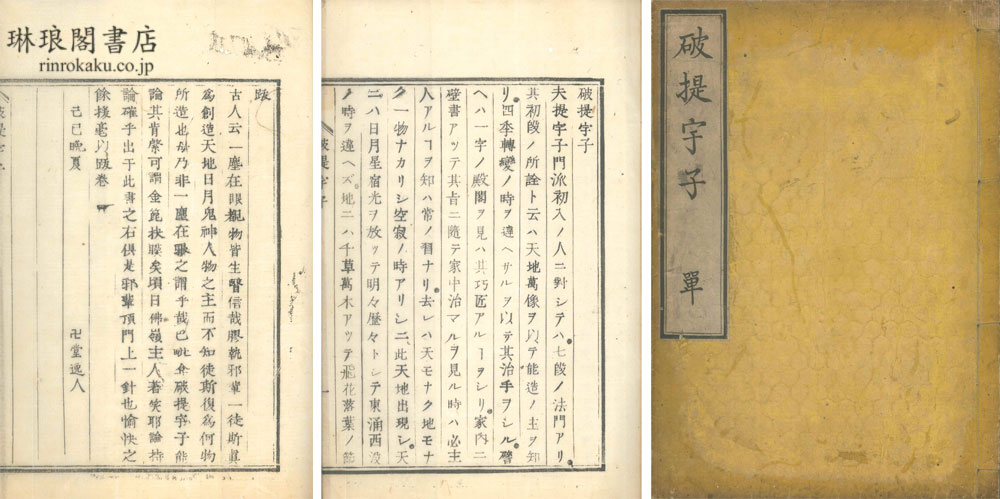 破提宇子 單
破提宇子
夫提宇子門派初入ノ人ニ對シテハ七段ノ法門アリ
其初段ノ所詮ト云ハ天地萬像ヲ以テ能造ノ主ヲ知
リ四季轉變ノ時ヲ違ヘサルヲ以テ其治手ヲシル譬
ヘハ一宇ノ殿閣ヲ見ハ其巧匠アルヿヲシリ家内ニ
壁書アッテ其旨ニ隨テ家中治マルヲ見ル時ハ必主
人アルヿヲ知ハ常ノ習ナリ去レハ天モナク地モナ
ク一物ナカリシ空寂ノ時アリシニ此天地出現シ天
ニハ日月星宿光ヲ放ッテ明々歴々トシテ東涌西沒
ノ時ヲ違ヘズ地ニハ千草萬木アッテ飛花落葉ノ節
琳琅閣書店
rinrokaku.co.jp
跋
古人云一塵在眼覩物皆生瞖信哉膠執邪輩一徒斯眞
為創造天地日月鬼神人物之主而不知徒斯復為何物
所造也毋乃非一塵在眼之謂乎哉已破提宇子能
論其肯綮可謂金篦抉膜矣頃日佛嶺主人著笑耶論持
論確乎出于此書之右倶是邪輩頂門上一針也愉快之
餘援毫以跋卷
己巳晩夏 卍堂逸人